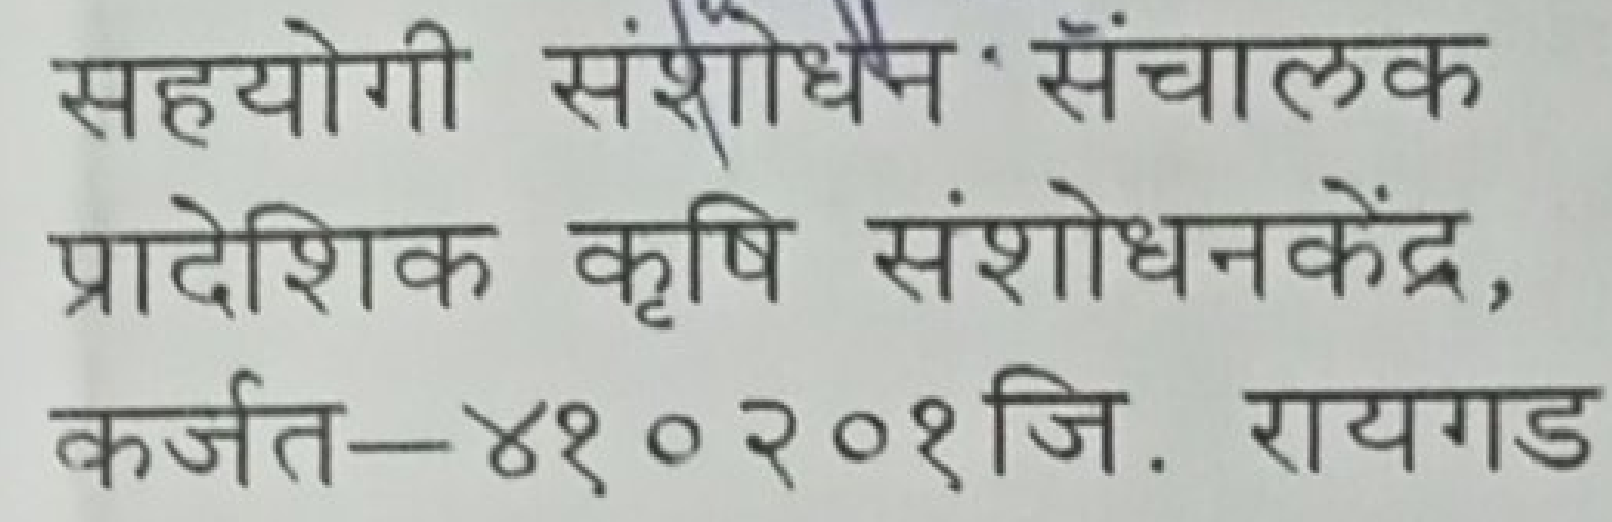 सहयोगी संशोधन संचालक
प्रादेशिक कृषि संशोधनकेंद्र,
कर्जत–४१०२०१जि. रायगड